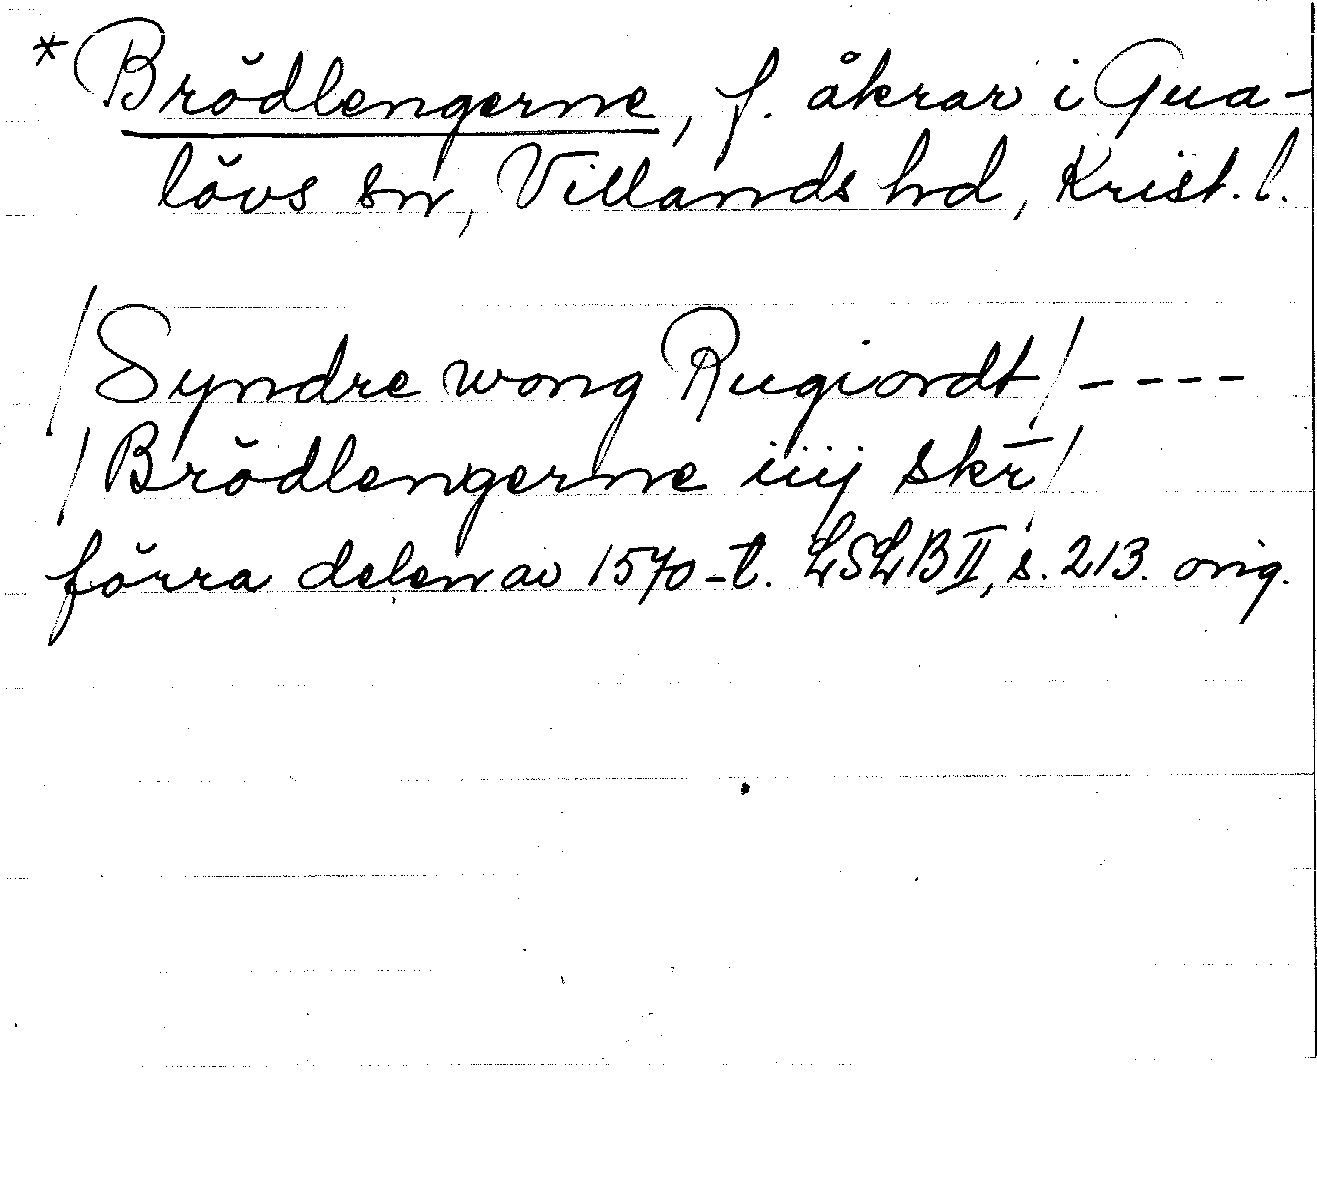 *Brödlengerne, f. åkrar i Gua-
lövs sn, Villands hd, Krist. l.
/Syndre wong Rugiordt/ ----
/Brödlengerne iiij skr̄/
förra delen av 1570-t. LSLB II, s. 213. orig.